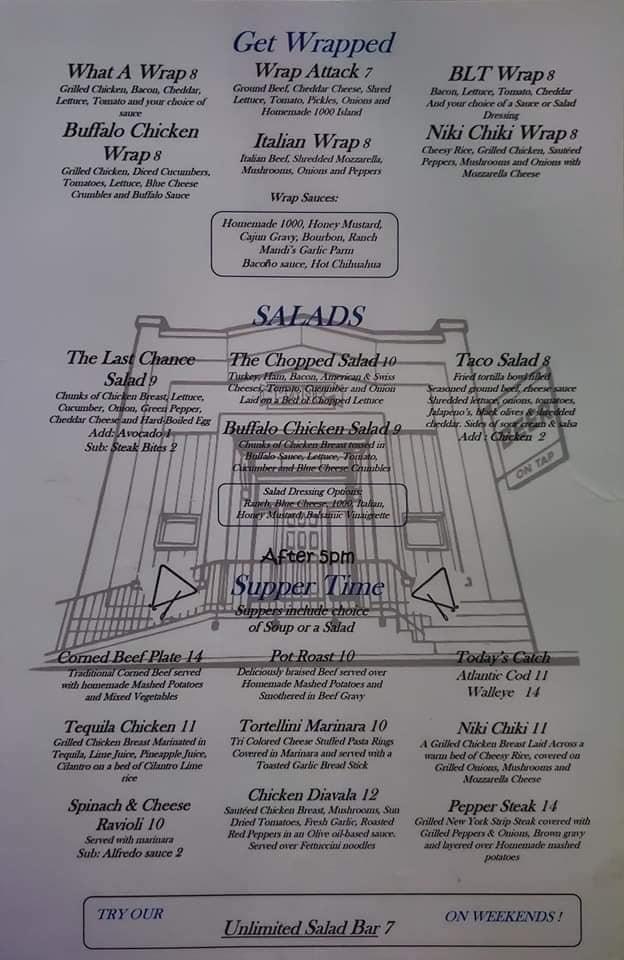 Get Wrapped
What A Wrap 8
Grilled Chicken, Bacon, Cheddar,
Lettuce, Tomato and your choice of
sauce
Wrap Attack 7
Ground Beef, Cheddar Cheese, Shred
Lettuce, Tomato, Pickles, Onions and
Homemade 1000 Island
BLT Wrap 8
Bacon, Lettuce, Tomato, Cheddar
And your choice of a Sauce or Salad
Dressing
Buffalo Chicken
Wrap 8
Grilled Chicken, Diced Cucumbers,
Tomatoes, Lettuce, Blue Cheese
Crumbles and Buffalo Sauce
Italian Wrap 8
Italian Beef, Shredded Mozzarella,
Mushrooms, Onions and Peppers
Niki Chiki Wrap 8
Cheesy Rice, Grilled Chicken, Sautéed
Peppers, Mushrooms and Onions with
Mozzarella Cheese
Wrap Sauces:
Homemade 1000, Honey Mustard,
Cajun Gravy, Bourbon, Ranch
Mandi's Garlic Parm
Bacoño sauce, Hot Chihuahua
SALADS
The Last Chance
Salad 9
Chunks of Chicken Breast, Lettuce,
Cucumber, Onion, Green Pepper,
Cheddar Cheese and Hard-Boiled Egg
Add: Avocado 1
Sub: Steak Bites 2
The Chopped Salad 10
Turkey, Ham, Bacon, American & Swiss
Cheeses, Tomato, Cucumber and Onion
Laid on a Bed of Chopped Lettuce
Buffalo Chicken Salad 9
Chunks of Chicken Breast tossed in
Buffalo Sauce, Lettuce, Tomato,
Cucumber and Blue Cheese Crumbles
Taco Salad 8
Fried tortilla bowl filled
Seasoned ground beef, cheese sauce
Shredded lettuce, onions, tomatoes,
Jalapeno's, black olives & shredded
cheddar. Sides of sour cream & salsa
Add : Chicken 2
BEER
ON TAP
Salad Dressing Options:
Ranch, Blue Cheese, 1000, Italian,
Honey Mustard, Balsamic Vinaigrette
After 5pm
Supper Time
Suppers include choice
of Soup or a Salad
Corned Beef Plate 14
Traditional Corned Beef served
with homemade Mashed Potatoes
and Mixed Vegetables
Pot Roast 10
Deliciously braised Beef served over
Homemade Mashed Potatoes and
Smothered in Beef Gravy
Today's Catch
Atlantic Cod 11
Walleye 14
Tequila Chicken 11
Grilled Chicken Breast Marinated in
Tequila, Lime Juice, Pineapple Juice,
Cilantro on a bed of Cilantro Lime
rice
Tortellini Marinara 10
Tri Colored Cheese Stuffed Pasta Rings
Covered in Marinara and served with a
Toasted Garlic Bread Stick
Niki Chiki 11
A Grilled Chicken Breast Laid Across a
warm bed of Cheesy Rice, covered on
Grilled Onions, Mushrooms and
Mozzarella Cheese
Spinach & Cheese
Ravioli 10
Served with marinara
Sub: Alfredo sauce 2
Chicken Diavala 12
Sautéed Chicken Breast, Mushrooms, Sun
Dried Tomatoes, Fresh Garlic, Roasted
Red Peppers in an Olive oil-based sauce.
Served over Fettuccini noodles
Pepper Steak 14
Grilled New York Strip Steak covered with
Grilled Peppers & Onions, Brown gravy
and layered over Homemade mashed
potatoes
TRY OUR
Unlimited Salad Bar 7
ON WEEKENDS !